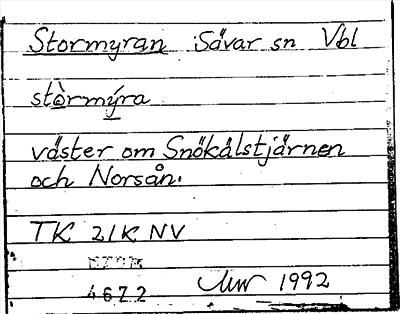 Stormyran Sävar sn Vbl
stòrmýra
väster om Snökålstjärnen
och Norsån.
TK 21K NV
4672
1992